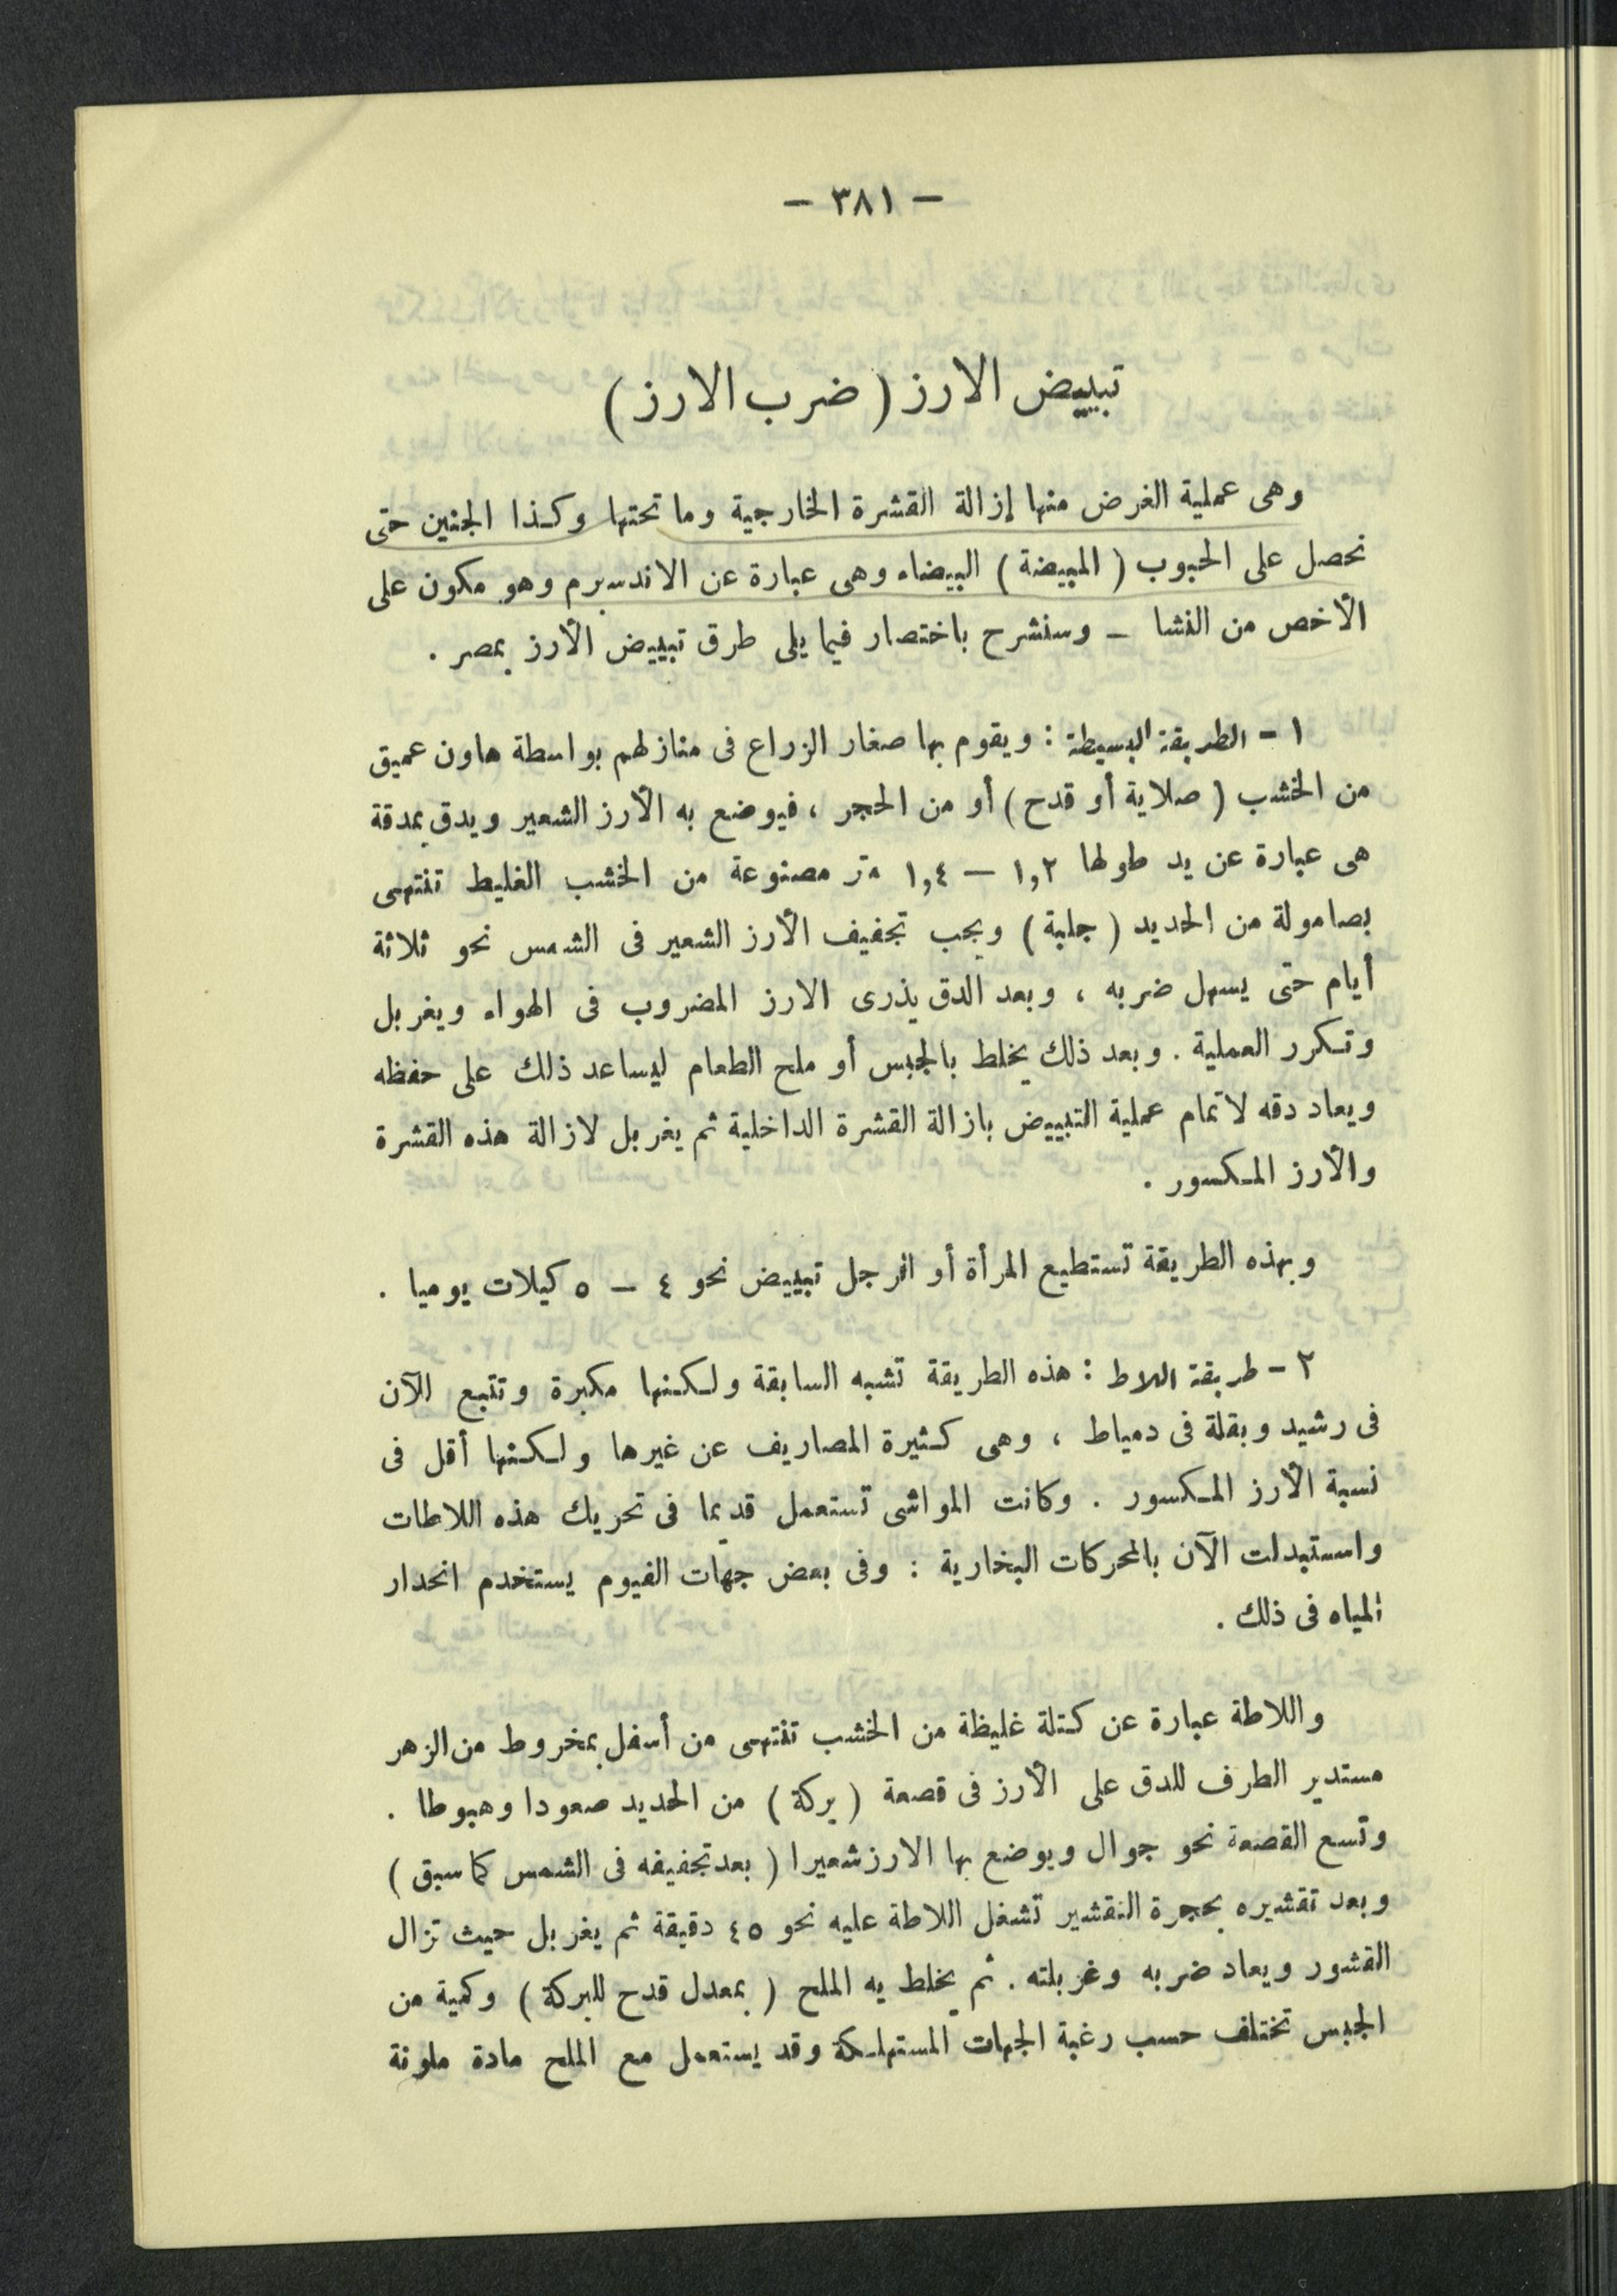 — ٣٨١ —
تبييض الارز ( ضرب الارز )
وهى عملية الغرض منها إزالة القشرة الخارجية وما تحتها وكذا الجنين حتى
نحصل على الحبوب ( المبيضة ) البيضاء وهى عبارة عن الاندسبرم وهو مكون على
الأخص من النشا — وسنشرح باختصار فيما يلى طرق تبييض الأرز بمصر .
١ - الطريقة البسيطة : ويقوم بها صغار الزراع فى منازلهم بواسطة هاون عميق
من الخشب ( صلاية أو قدح ) أو من الحجر ، فيوضع به الأرز الشعير ويدق بمدقة
هى عبارة عن يد طولها ١,٢ — ١,٤ متر مصنوعة من الخشب الغليط تنتهى
بصامولة من الحديد ( جلبة ) ويجب تجفيف الأرز الشعير فى الشمس نحو ثلاثة
أيام حتى يسهل ضربه ، وبعد الدق يذرى الارز المضروب فى الهواء ويغربل
وتكرر العملية . وبعد ذلك يخلط بالجبس أو ملح الطعام ليساعد ذلك على حفظه
ويعاد دقه لاتمام عملية التبييض بازالة القشرة الداخلية ثم يغربل لازالة هذه القشرة
والأرز المكسور .
وبهذه الطريقة تستطيع المرأة أو الرجل تبييض نحو ٤ — ٥ كيلات يوميا .
٢ - طريقة اللاط : هذه الطريقة تشبه السابقة ولكنها مكبرة وتتبع الآن
فى رشيد وبقلة فى دمياط ، وهى كثيرة المصاريف عن غيرها ولكنها أقل فى
نسبة الأرز المكسور . وكانت المواشى تستعمل قديما فى تحريك هذه اللاطات
واستبدلت الآن بالمحركات البخارية : وفى بعض جهات الفيوم يستخدم انحدار
المياه فى ذلك .
واللاطة عبارة عن كتلة غليظة من الخشب تنتهى من أسفل بمخروط من الزهر
مستدير الطرف للدق على الأرز فى قصعة ( بركة ) من الحديد صعودا وهبوطا .
وتسع القصعة نحو جوال ويوضع بها الارز شعيرا ( بعد تجفيفه فى الشمس كما سبق )
وبعد تقشيره بحجرة التقشير تشغل اللاطة عليه نحو ٤٥ دقيقة ثم يغربل حيث تزال
القشور ويعاد ضربه وغربلته . ثم يخلط به الملح ( بمعدل قدح للبركة ) وكمية من
الجبس تختلف حسب رغبة الجهات المستهلكة وقد يستعمل مع الملح مادة ملونة